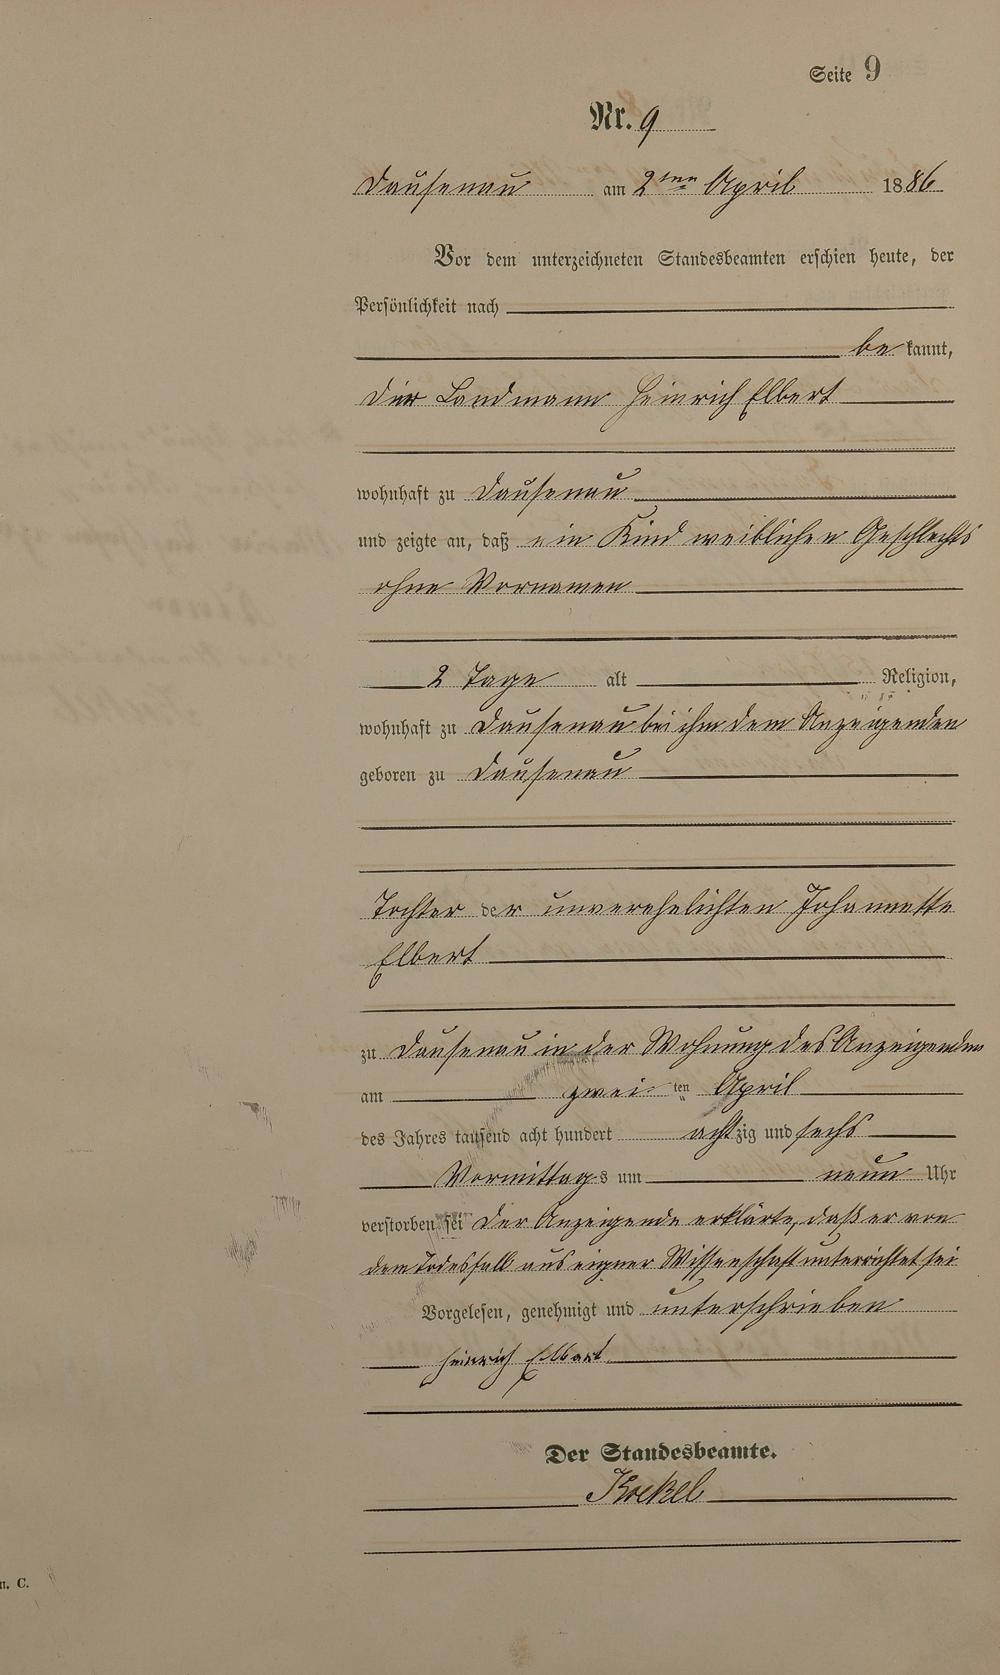 Seite 9
Nr. 9
Dausenau am 2ten April 1886
Vor dem unterzeichneten Standesbeamten erschien heute, der
Persönlichkeit nach
be kannt,
der Landmann Heinrich Elbert
wohnhaft zu Dausenau
und zeigte an, daß ein Kind weiblichen Geschlechts
ohne Vornamen
2 Tage alt Religion,
wohnhaft zu Dausenau bei ihm dem Anzeigenden
geboren zu Dausenau
Tochter der unverehelichten Johannette
Elbert
zu Dausenau in der Wohnung des Anzeigenden
am zwei ten April
des Jahres tausend acht hundert achtzig und sechs
Vormittags um neun Uhr
verstorben sei Der Anzeigende erklärte, daß er von
dem Todesfall aus eigner Wissenschaft unterrichtet sei
Vorgelesen, genehmigt und unterschrieben
Heinrich Elbert
Der Standesbeamte.
n. C.